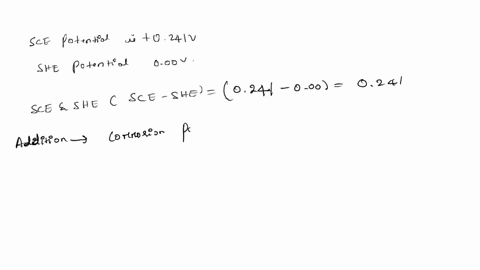 SCE potential is +0.241V
SHE potential 0.00V.
SCE & SHE ( SCE - SHE) = (0.241 - 0.00) = 0.241
Addition → Corrosion P